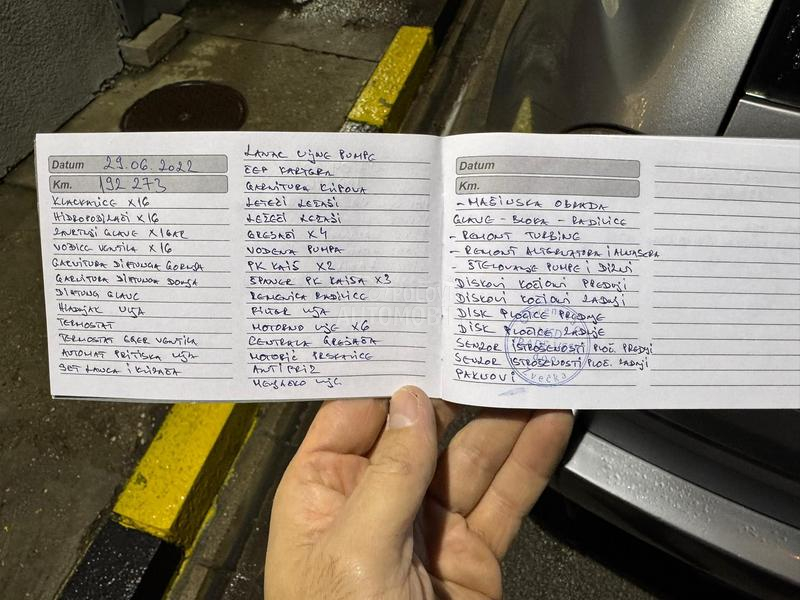 Datum 29.06.2022
Km. 192 273
KLACKALICE X16
HIDROPODIZAČI X16
ZAVRTNJI GLAVE X1GAR
VOĐICE VENTILA X16
GARNITURA DIHTUNGA GORNJA
GARNITURA DIHTUNGA DONJA
DIHTUNG GLAVE
HLADNJAK ULJA
TERMOSTAT
TERMOSTAT EGER VENTILA
AUTOMAT PRITISKA ULJA
SET LANCA I KLIZAČA
LANAC ULJNE PUMPE
ČEP KARTERA
GARNITURA KLIPOVA
LETEĆI LEŽAJI
LEŽEĆI LEŽAJI
GREJAČI X4
VODENA PUMPA
PK KAIŠ X2
ŠPANER PK KAIŠA X3
REMENICA RADILICE
FILTER ULJA
MOTORNO ULJE X6
CENTRALA GREJAČA
MOTORIĆ PRSKALICE
ANTIFRIZ
MENJAČKO ULJE
Datum
Km.
- MAŠINSKA OBRADA
GLAVE - BLOKA - RADILICE
- REMONT TURBINE
- REMONT ALTERNATORA I ANLASERA
- ŠTELOVANJE PUMPE I DIZNI
DISKOVI KOČIONI PREDNJI
DISKOVI KOČIONI ZADNJI
DISK PLOČICE PREDNJE
DISK PLOČICE ZADNJE
SENZOR ISTROŠENOSTI PLOČ. PREDNJI
SENZOR ISTROŠENOSTI PLOČ. ZADNJI
PAKNOVI